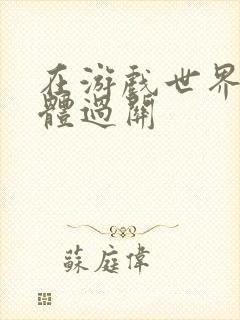 在游戏世界
體過關
蘇庭偉